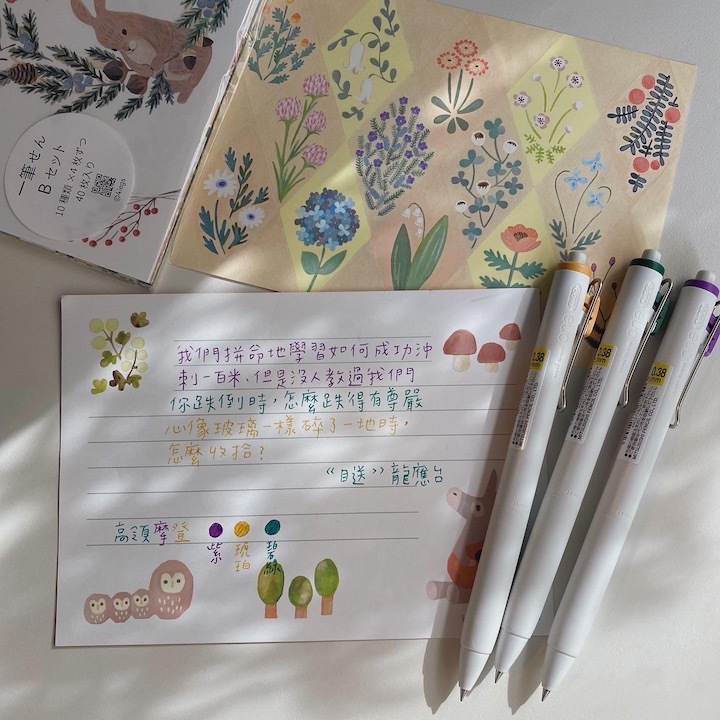 一筆せん
Bセット
10種類×4枚ずつ
40枚入り
@4legs
我們拼命地學習如何成功沖
刺一百米、但是沒人教過我們
你跌倒時，怎麼跌得有尊嚴
心像玻璃一樣碎了一地時，
怎麼收拾？
《目送》龍應台
高領摩登
紫
琥珀
碧綠
0.38
mm
0.38
mm
0.38
mm